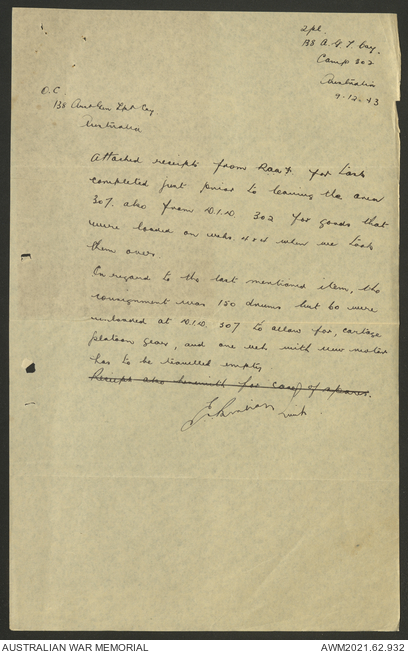 2pl.
138 A.G.T. Coy.
Camp 302
Australia
9-12-43
O.C.
138 Aust Gen Tpt Coy
Australia
Attached receipts from R.A.A.F. for task
completed just prior to leaving the area
307. also from D.I.D. 302 for goods that
were loaded on vehs 4x4 when we took
them over
In regard to the last mentioned item, the
consignment was 150 drums but 60 were
unloaded at D.I.D. 307 to allow for, cartage
platoon gear, and one veh with new motor
has to be travelled empty
Receipt also herewith for case of spares.
Lieut
AUSTRALIAN WAR MEMORIAL
AWM2021.62.932